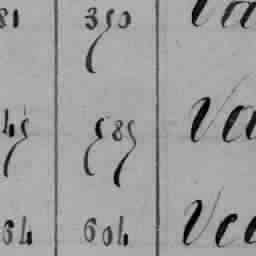 81 350 Va
45 585 Va
64 604 Vec